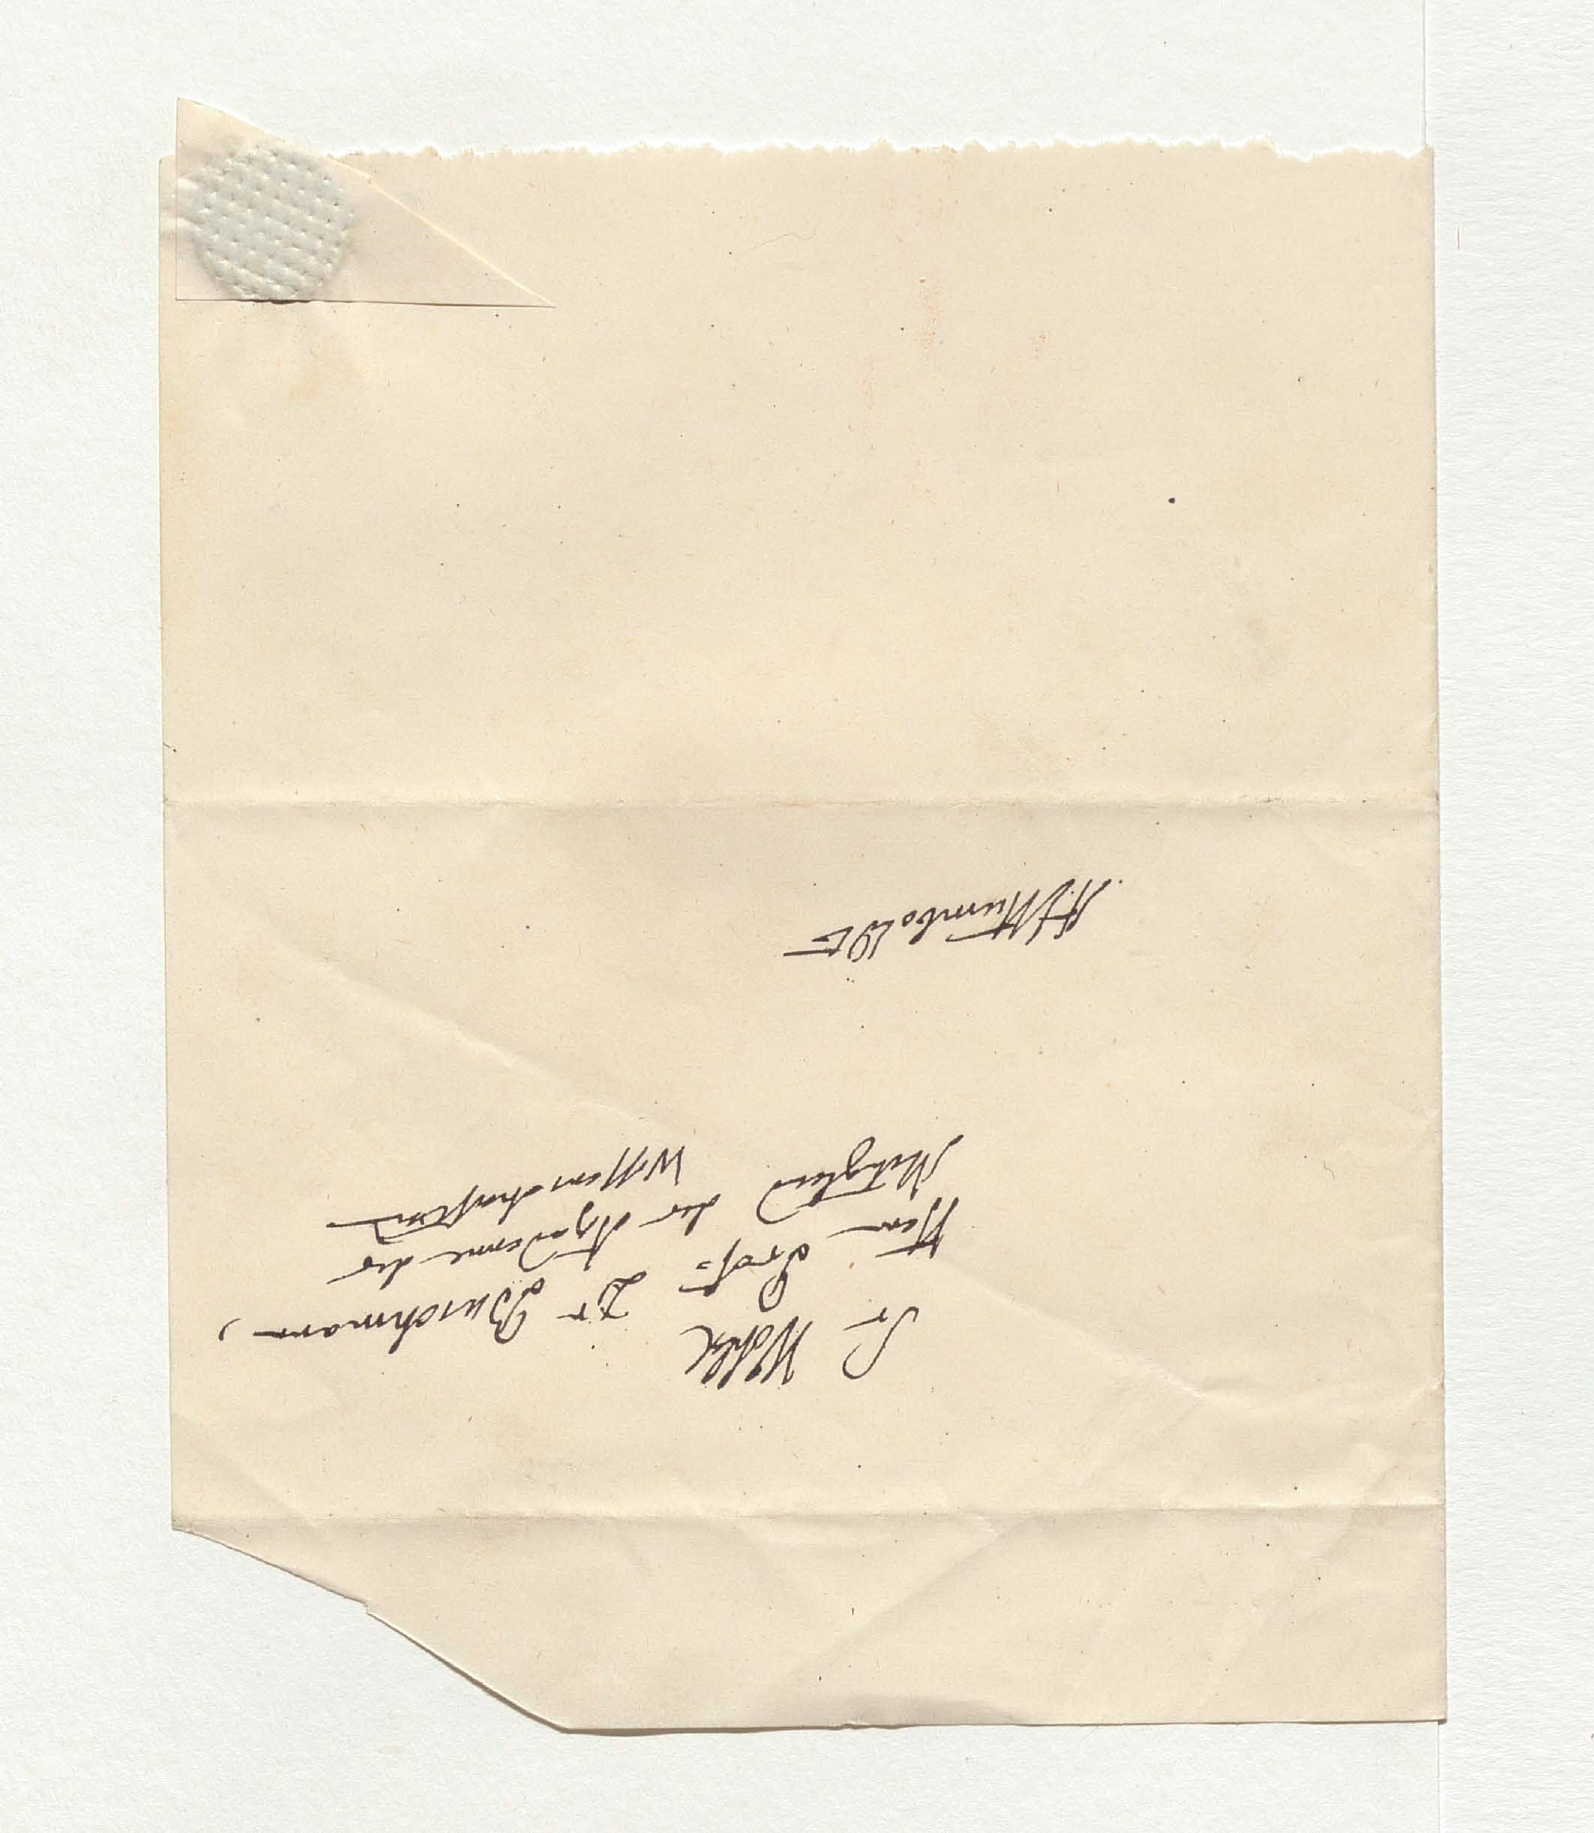 Sr Wohlg
Herrn Prof. Dr Buschmann,
Mitglied der Academie der
Wissenschaften
A. v Humboldt